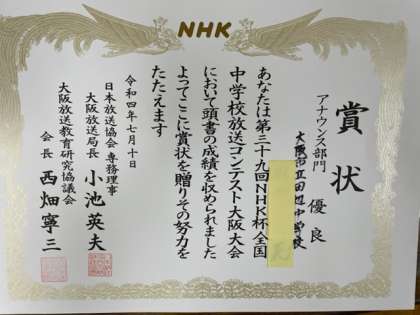 NHK
賞状
アナウンス部門 優良
大阪市立田辺中学校
あなたは第三十九回NHK杯全国
中学校放送コンテスト大阪大会
において頭書の成績を収められました
よってここに賞状を贈りその努力を
たたえます
令和四年七月十日
日本放送協会 専務理事
大阪放送局長 小池英夫
大阪放送教育研究協議会
会長 西畑寧三